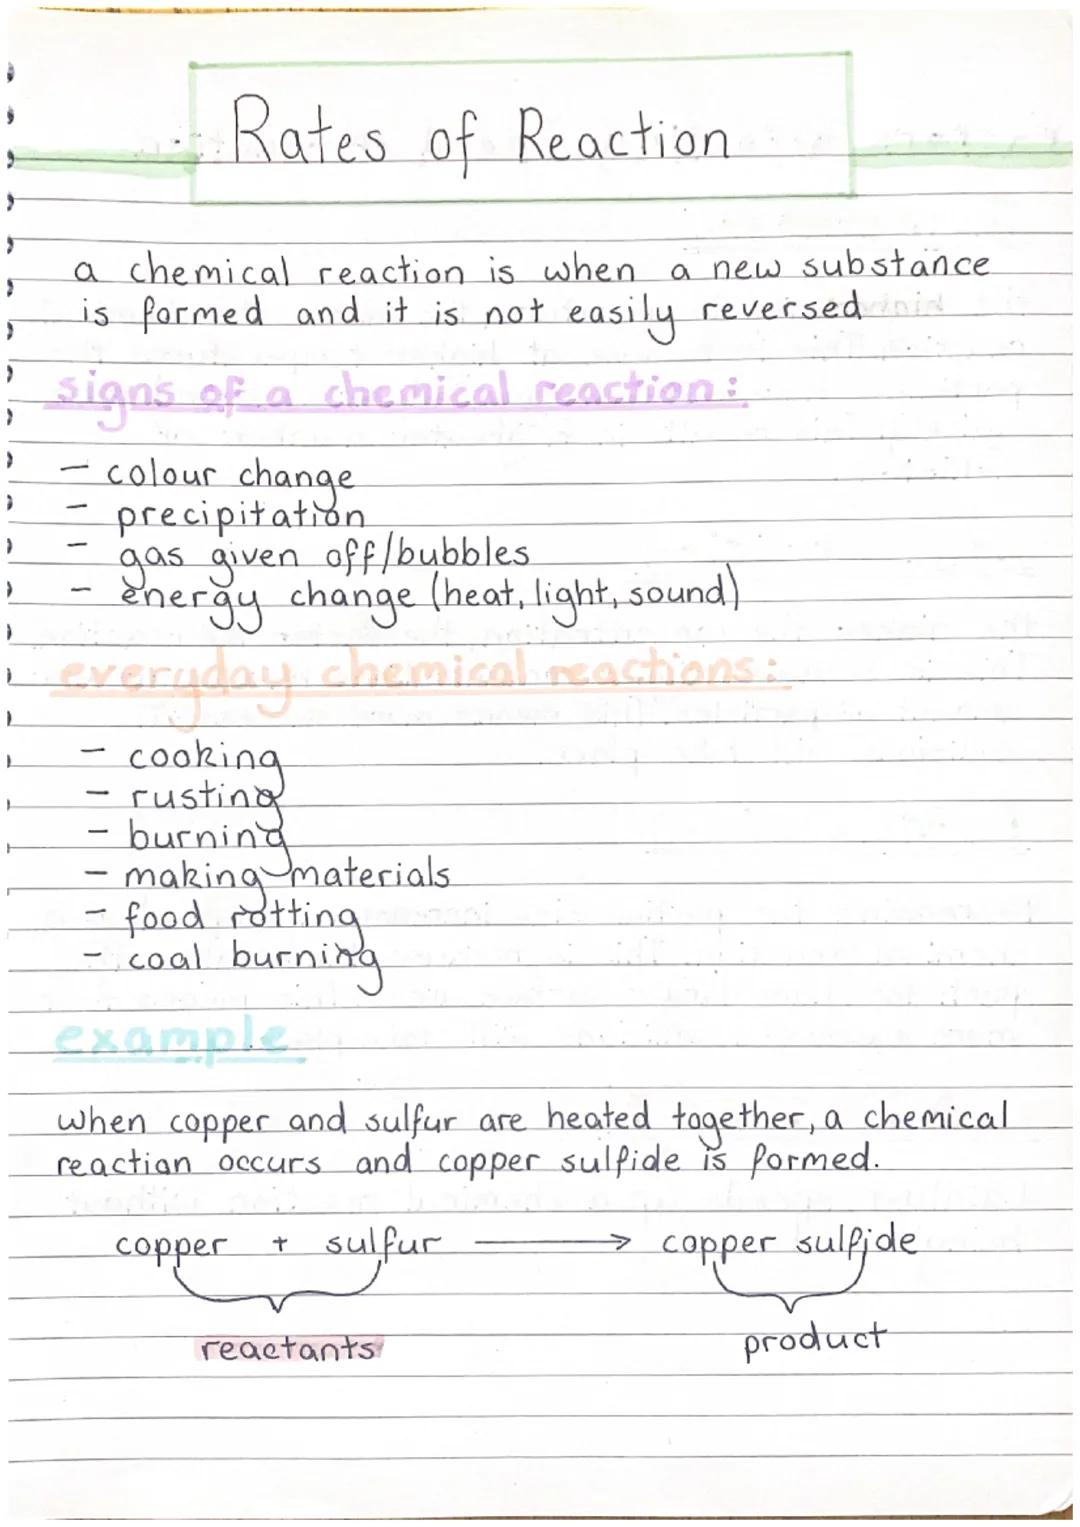 Rates of Reaction
a chemical reaction is when a new substance
is formed and it is not easily reversed
signs of a chemical reaction:
- colour change
- precipitation
- gas given off/bubbles
- energy change (heat, light, sound)
everyday chemical reactions:
- cooking
- rusting
- burning
- making materials
- food rotting
- coal burning
example
when copper and sulfur are heated together, a chemical
reaction occurs and copper sulfide is formed.
copper + sulfur → copper sulfide
reactants product